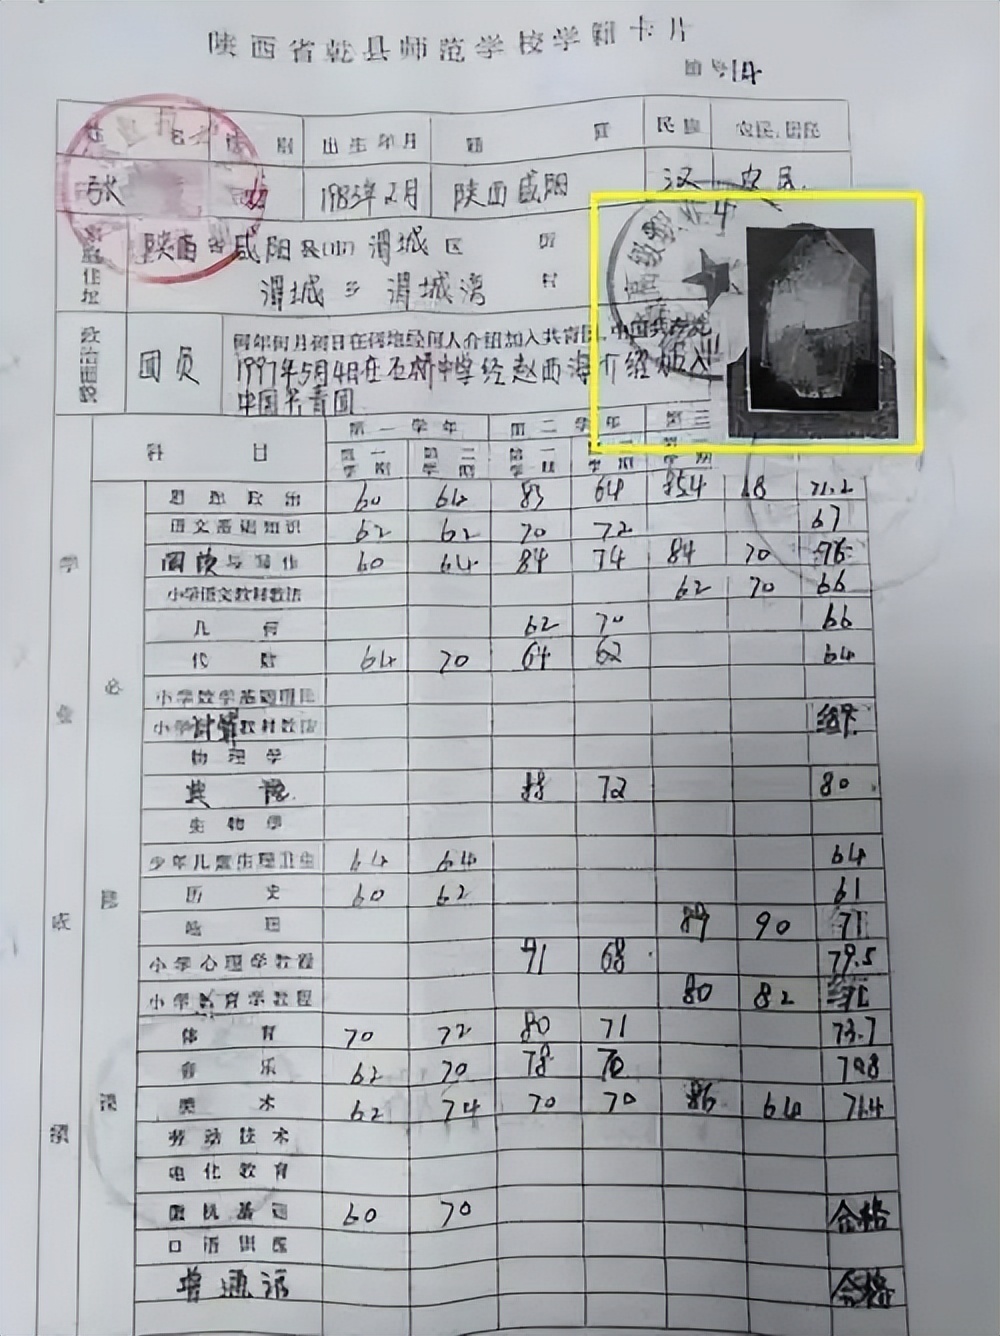 陕西省乾县师范学校学籍卡片
姓 名 性 别 出生年月 籍 贯 民族 农民、居民
张 女 1983年2月 陕西咸阳 汉 农民
家庭住址 陕西省咸阳县(市)渭城区
渭城乡 渭城湾 村
政治面貌 团员 何年何月何日在何地经何人介绍加入共青团、中国共产党
1997年5月4日在石桥中学经赵西海介绍加入
中国共青团
科 目 第一学年 第二学年 第三
第一学期 第二学期 第一学期 第二学期
学业成绩
必修课
思想政治 60 64 83 64 71.2
语文基础知识 62 62 70 72 67
阅读与写作 60 64 84 74 84 70 76
小学语文教材教法 62 70 66
几 何 62 70 66
代 数 64 70 64 62 64
小学数学基础理论
小学计算教材教法
物理学
72 80
生物学
少年儿童生理卫生 64 64 64
历 史 60 62 61
89 90 71
小学心理学教程 91 68 79.5
小学教育学教程 80 82
体 育 70 72 80 71 73.7
音 乐 62 70 78 70
美 术 62 74 70 70 86 64 71.4
劳动技术
电化教育
微机基础 60 70 合格
口语训练
普通话 合格
高级